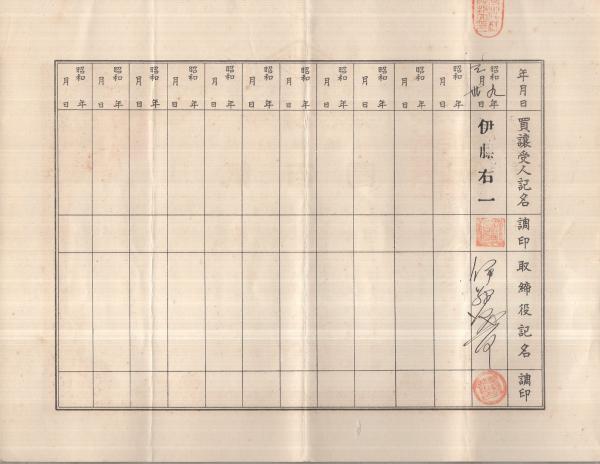 年月日
買讓受人記名
調印
取締役記名
調印
昭和九年
月
日
伊
右一
昭和 年
月 日
昭和 年
月 日
昭和 年
月 日
昭和 年
月 日
昭和 年
月 日
昭和 年
月 日
昭和 年
月 日
昭和 年
月 日
昭和 年
月 日
昭和 年
月 日
昭和 年
月 日